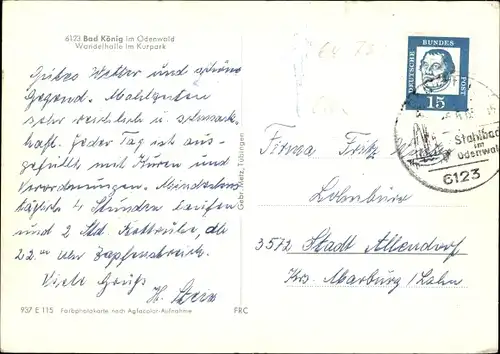 6123 Bad König im Odenwald
Wandelhalle im Kurpark
Gutes Wetter und schöne
Gegend. Mahlzeiten
sehr reichlich u. schmack-
haft. Jeder Tag ist aus-
gefüllt mit Kuren und
Verordnungen. Mindestens
täglich 4 Stunden laufen
und 2 Std. Bettruhe, ab
22.00 Uhr Zapfenstreich.
Viele Grüße
H. Stein
937 E 115 Farbphotokarte nach Agfacolor-Aufnahme FRC
Gebr. Metz, Tübingen
DEUTSCHE BUNDES POST
15
Stahlbad
im
Odenwald
6123
Firma Fritz
3572 Stadt Allendorf
Krs. Marburg / Lahn